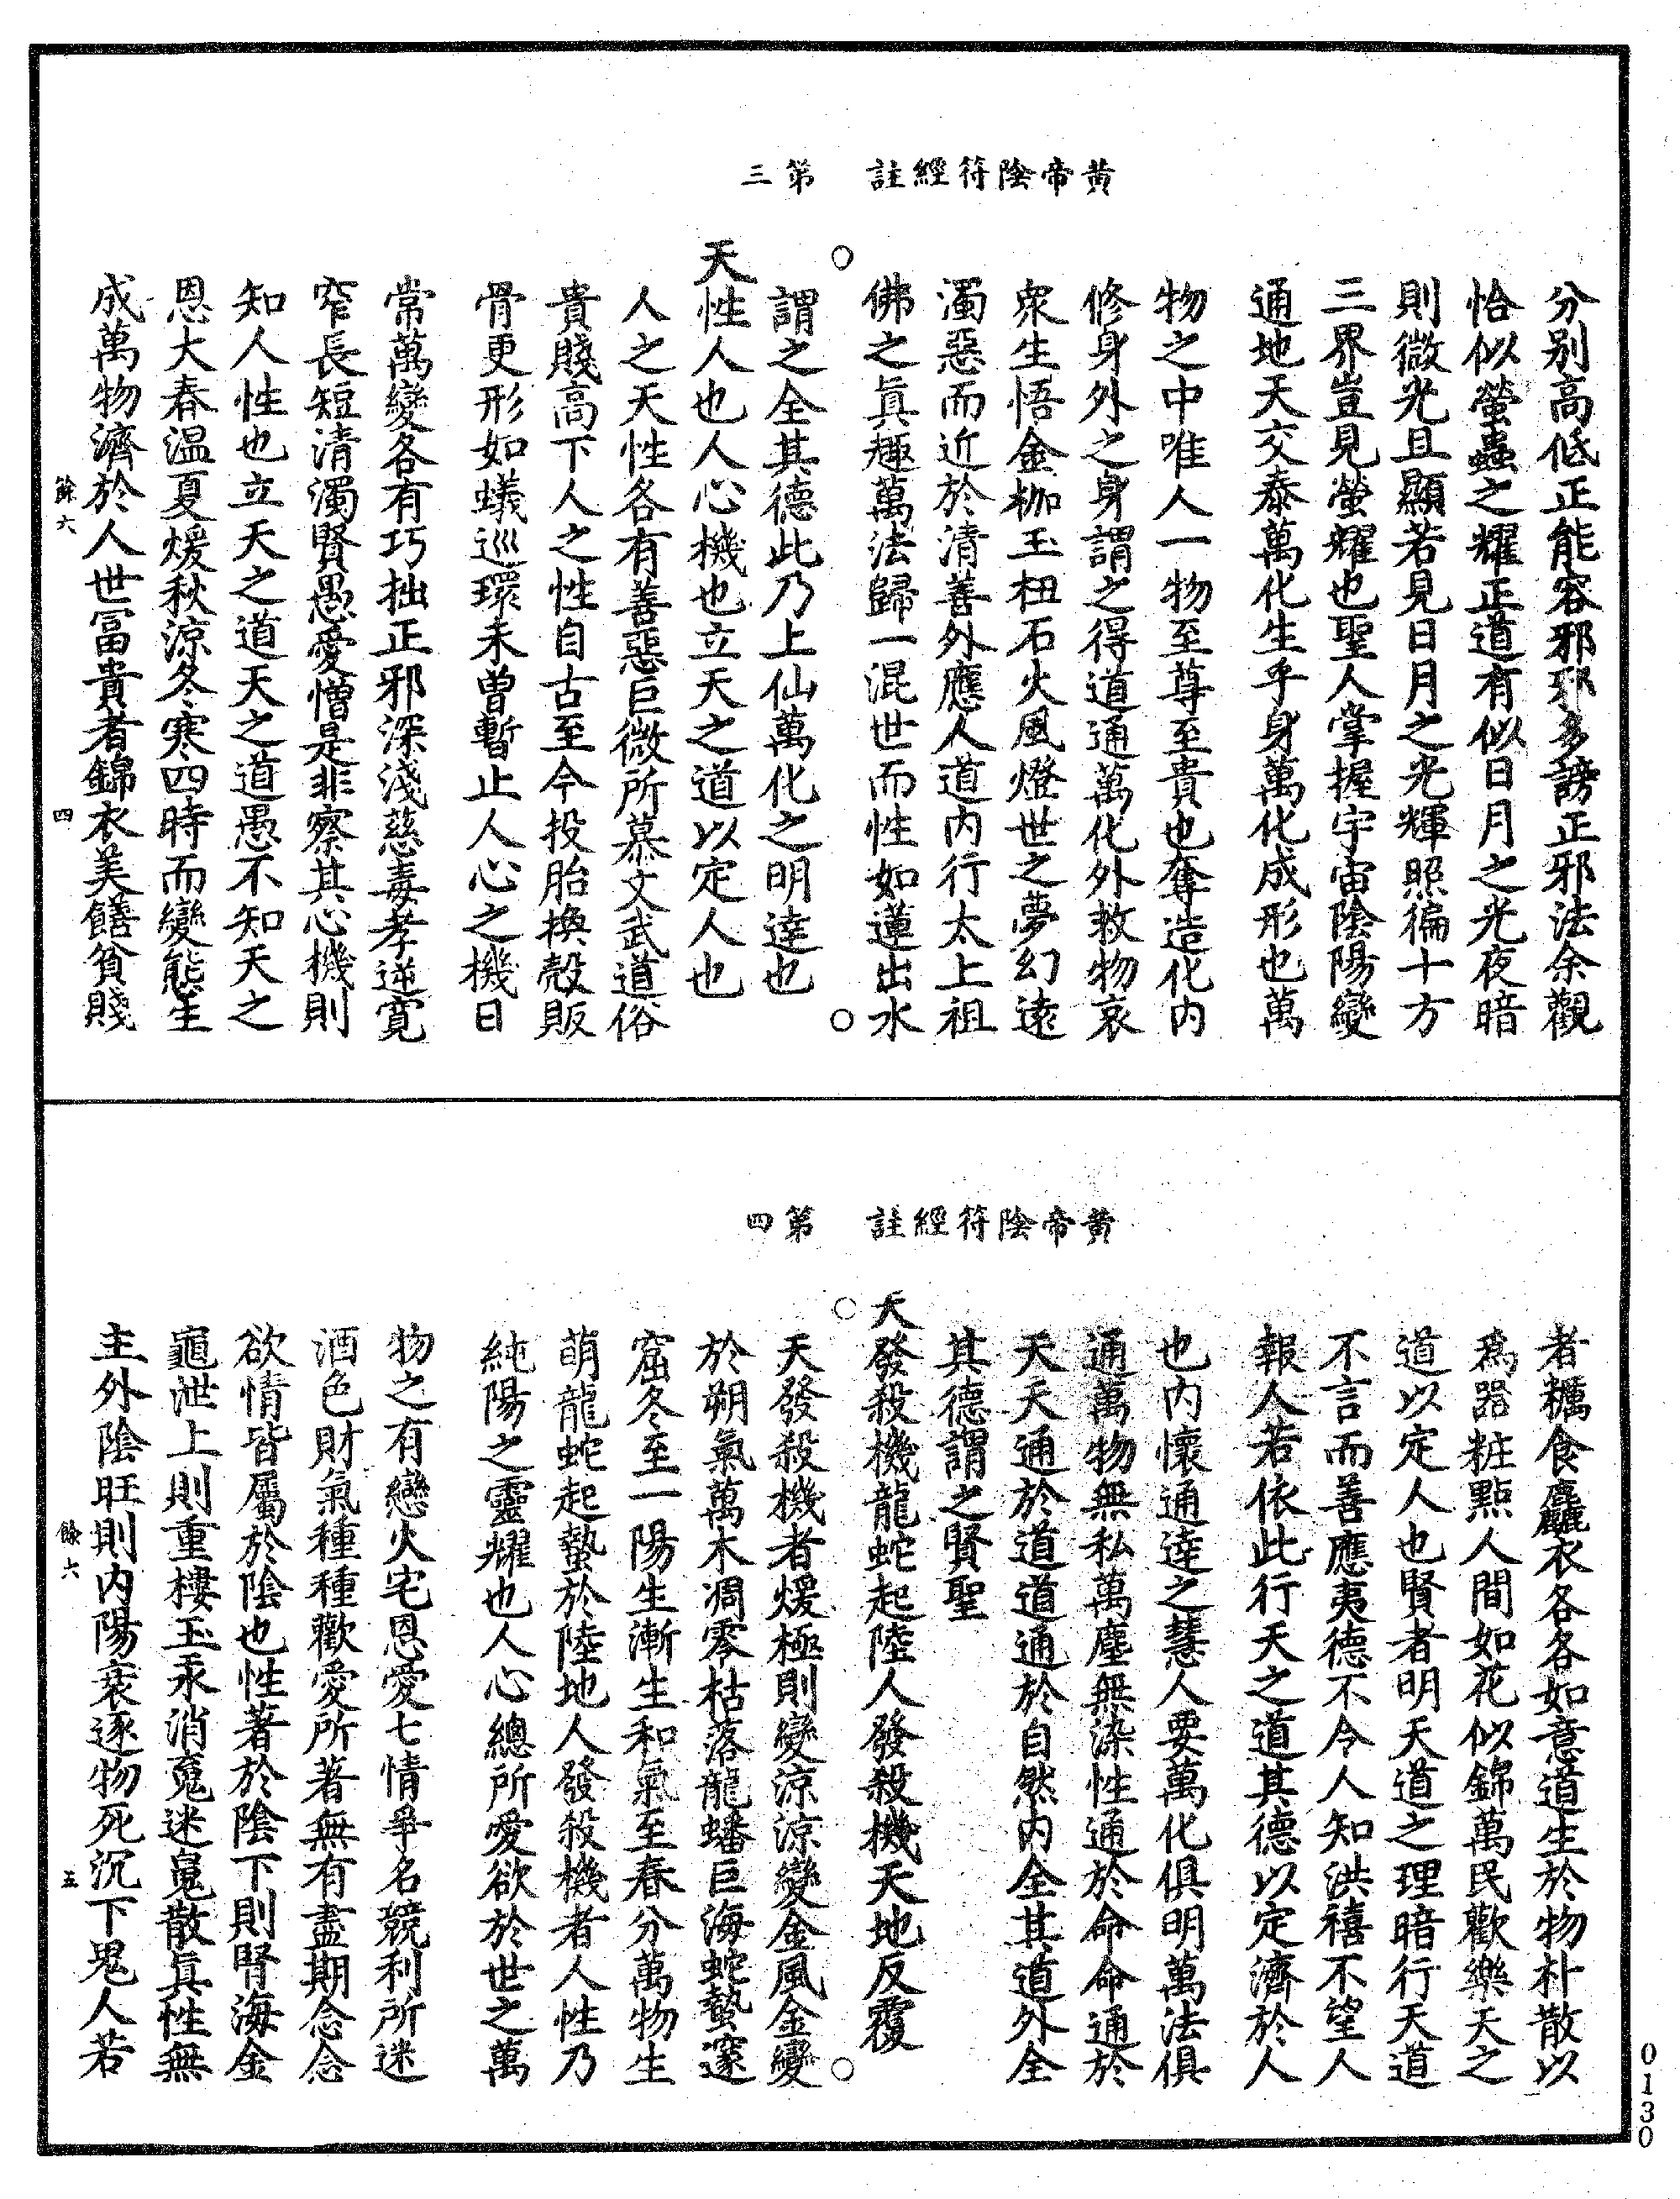 黃帝陰符經註　第三
分別高低正能容邪邪多謗正邪法余觀
恰似螢蟲之耀正道有似日月之光夜暗
則微光且顯若見日月之光輝照徧十方
三界豈見螢耀也聖人掌握宇宙陰陽變
通地天交泰萬化生乎身萬化成形也萬
物之中唯人一物至尊至貴也奪造化內
修身外之身謂之得道通萬化外救物哀
衆生悟金枷玉杻石火風燈世之夢幻遠
濁惡而近於清善外應人道內行太上祖
佛之眞趣萬法歸一混世而性如蓮出水
謂之全其德此乃上仙萬化之明達也
天性人也人心機也立天之道以定人也
人之天性各有善惡巨微所慕文武道俗
貴賤高下人之性自古至今投胎換殼販
骨更形如蟻巡環未曾暫止人心之機日
常萬變各有巧拙正邪深淺慈毒孝逆寬
窄長短清濁賢愚愛憎是非察其心機則
知人性也立天之道天之道愚不知天之
恩大春溫夏煖秋涼冬寒四時而變態生
成萬物濟於人世冨貴者錦衣美饍貧賤
餘六　四
黃帝陰符經註　第四
者糲食麤衣各各如意道生於物朴散以
爲器粧點人間如花似錦萬民歡樂天之
道以定人也賢者明天道之理暗行天道
不言而善應夷德不令人知洪禧不望人
報人若依此行天之道其德以定濟於人
也內懷通達之慧人要萬化俱明萬法俱
通萬物無私萬塵無染性通於命命通於
天天通於道道通於自然內全其道外全
其德謂之賢聖
天發殺機龍蛇起陸人發殺機天地反覆
天發殺機者煖極則變涼涼變金風金變
於朔氣萬木凋零枯落龍蟠巨海蛇蟄邃
窟冬至一陽生漸生和氣至春分萬物生
萌龍蛇起蟄於陸地人發殺機者人性乃
純陽之靈耀也人心總所愛欲於世之萬
物之有戀火宅恩愛七情爭名競利所迷
酒色財氣種種歡愛所著無有盡期念念
欲情皆屬於陰也性著於陰下則腎海金
龜泄上則重樓玉汞消䰟迷䰟散眞性無
主外陰旺則內陽衰逐物死沉下鬼人若
餘六　五
0130